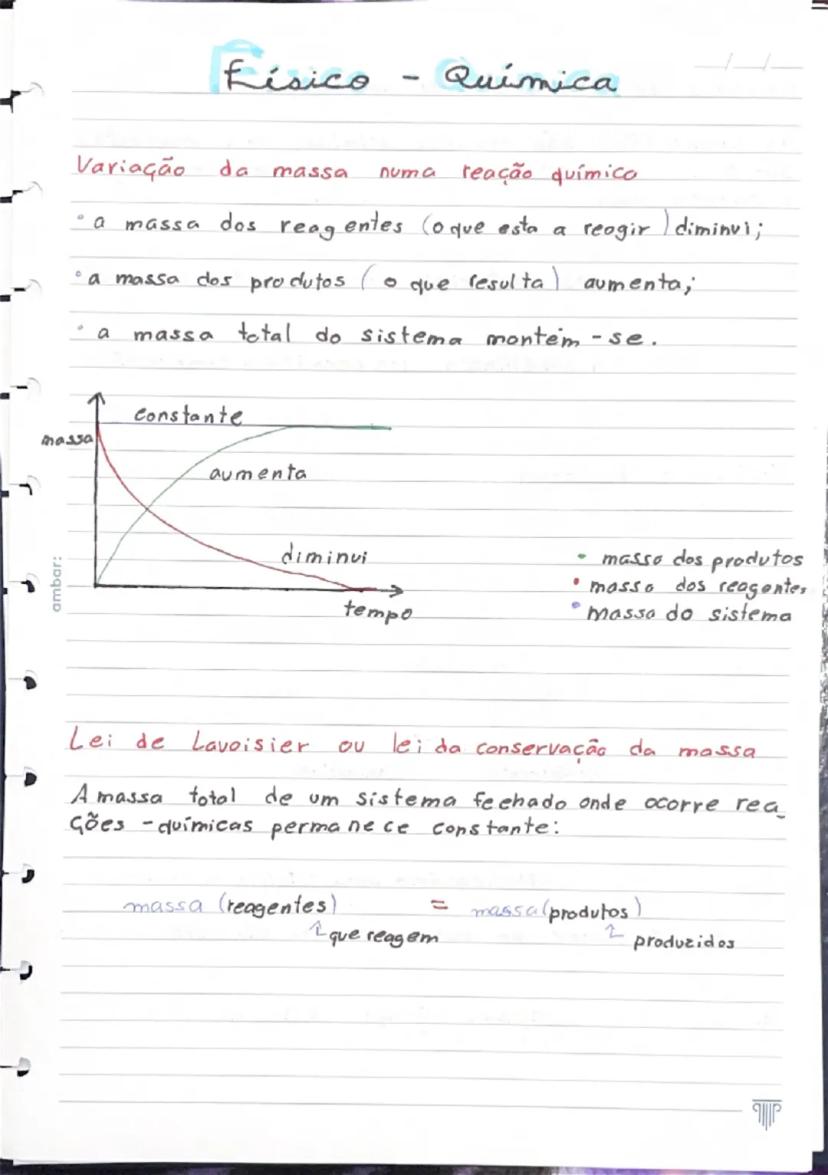 Físico - Química
Variação da massa numa reação químico
• a massa dos reagentes (o que esta a reagir) diminui;
• a massa dos produtos (o que resulta) aumenta;
• a massa total do sistema mantém-se.
constante
massa
aumenta
diminui
tempo
• massa dos produtos
• massa dos reagentes
• massa do sistema
ambar:
Lei de Lavoisier ou lei da conservação da massa
A massa total de um sistema fechado onde ocorre rea_
ções - químicas permanece constante:
massa (reagentes) = massa (produtos)
↑ que reagem ↑ produzidos